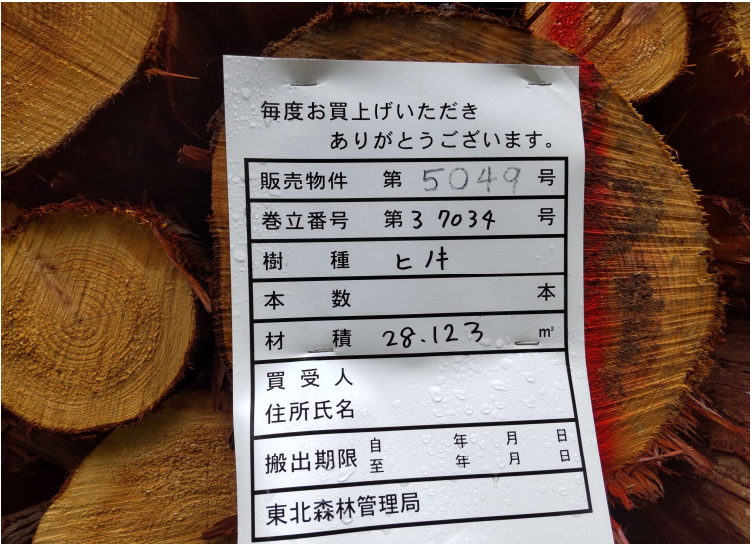 毎度お買上げいただき
ありがとうございます。
販売物件 第 5049 号
巻立番号 第 37034 号
樹種 ヒノキ
本数 本
材積 28.123 m³
買受人
住所氏名
搬出期限 自 年 月 日
至 年 月 日
東北森林管理局